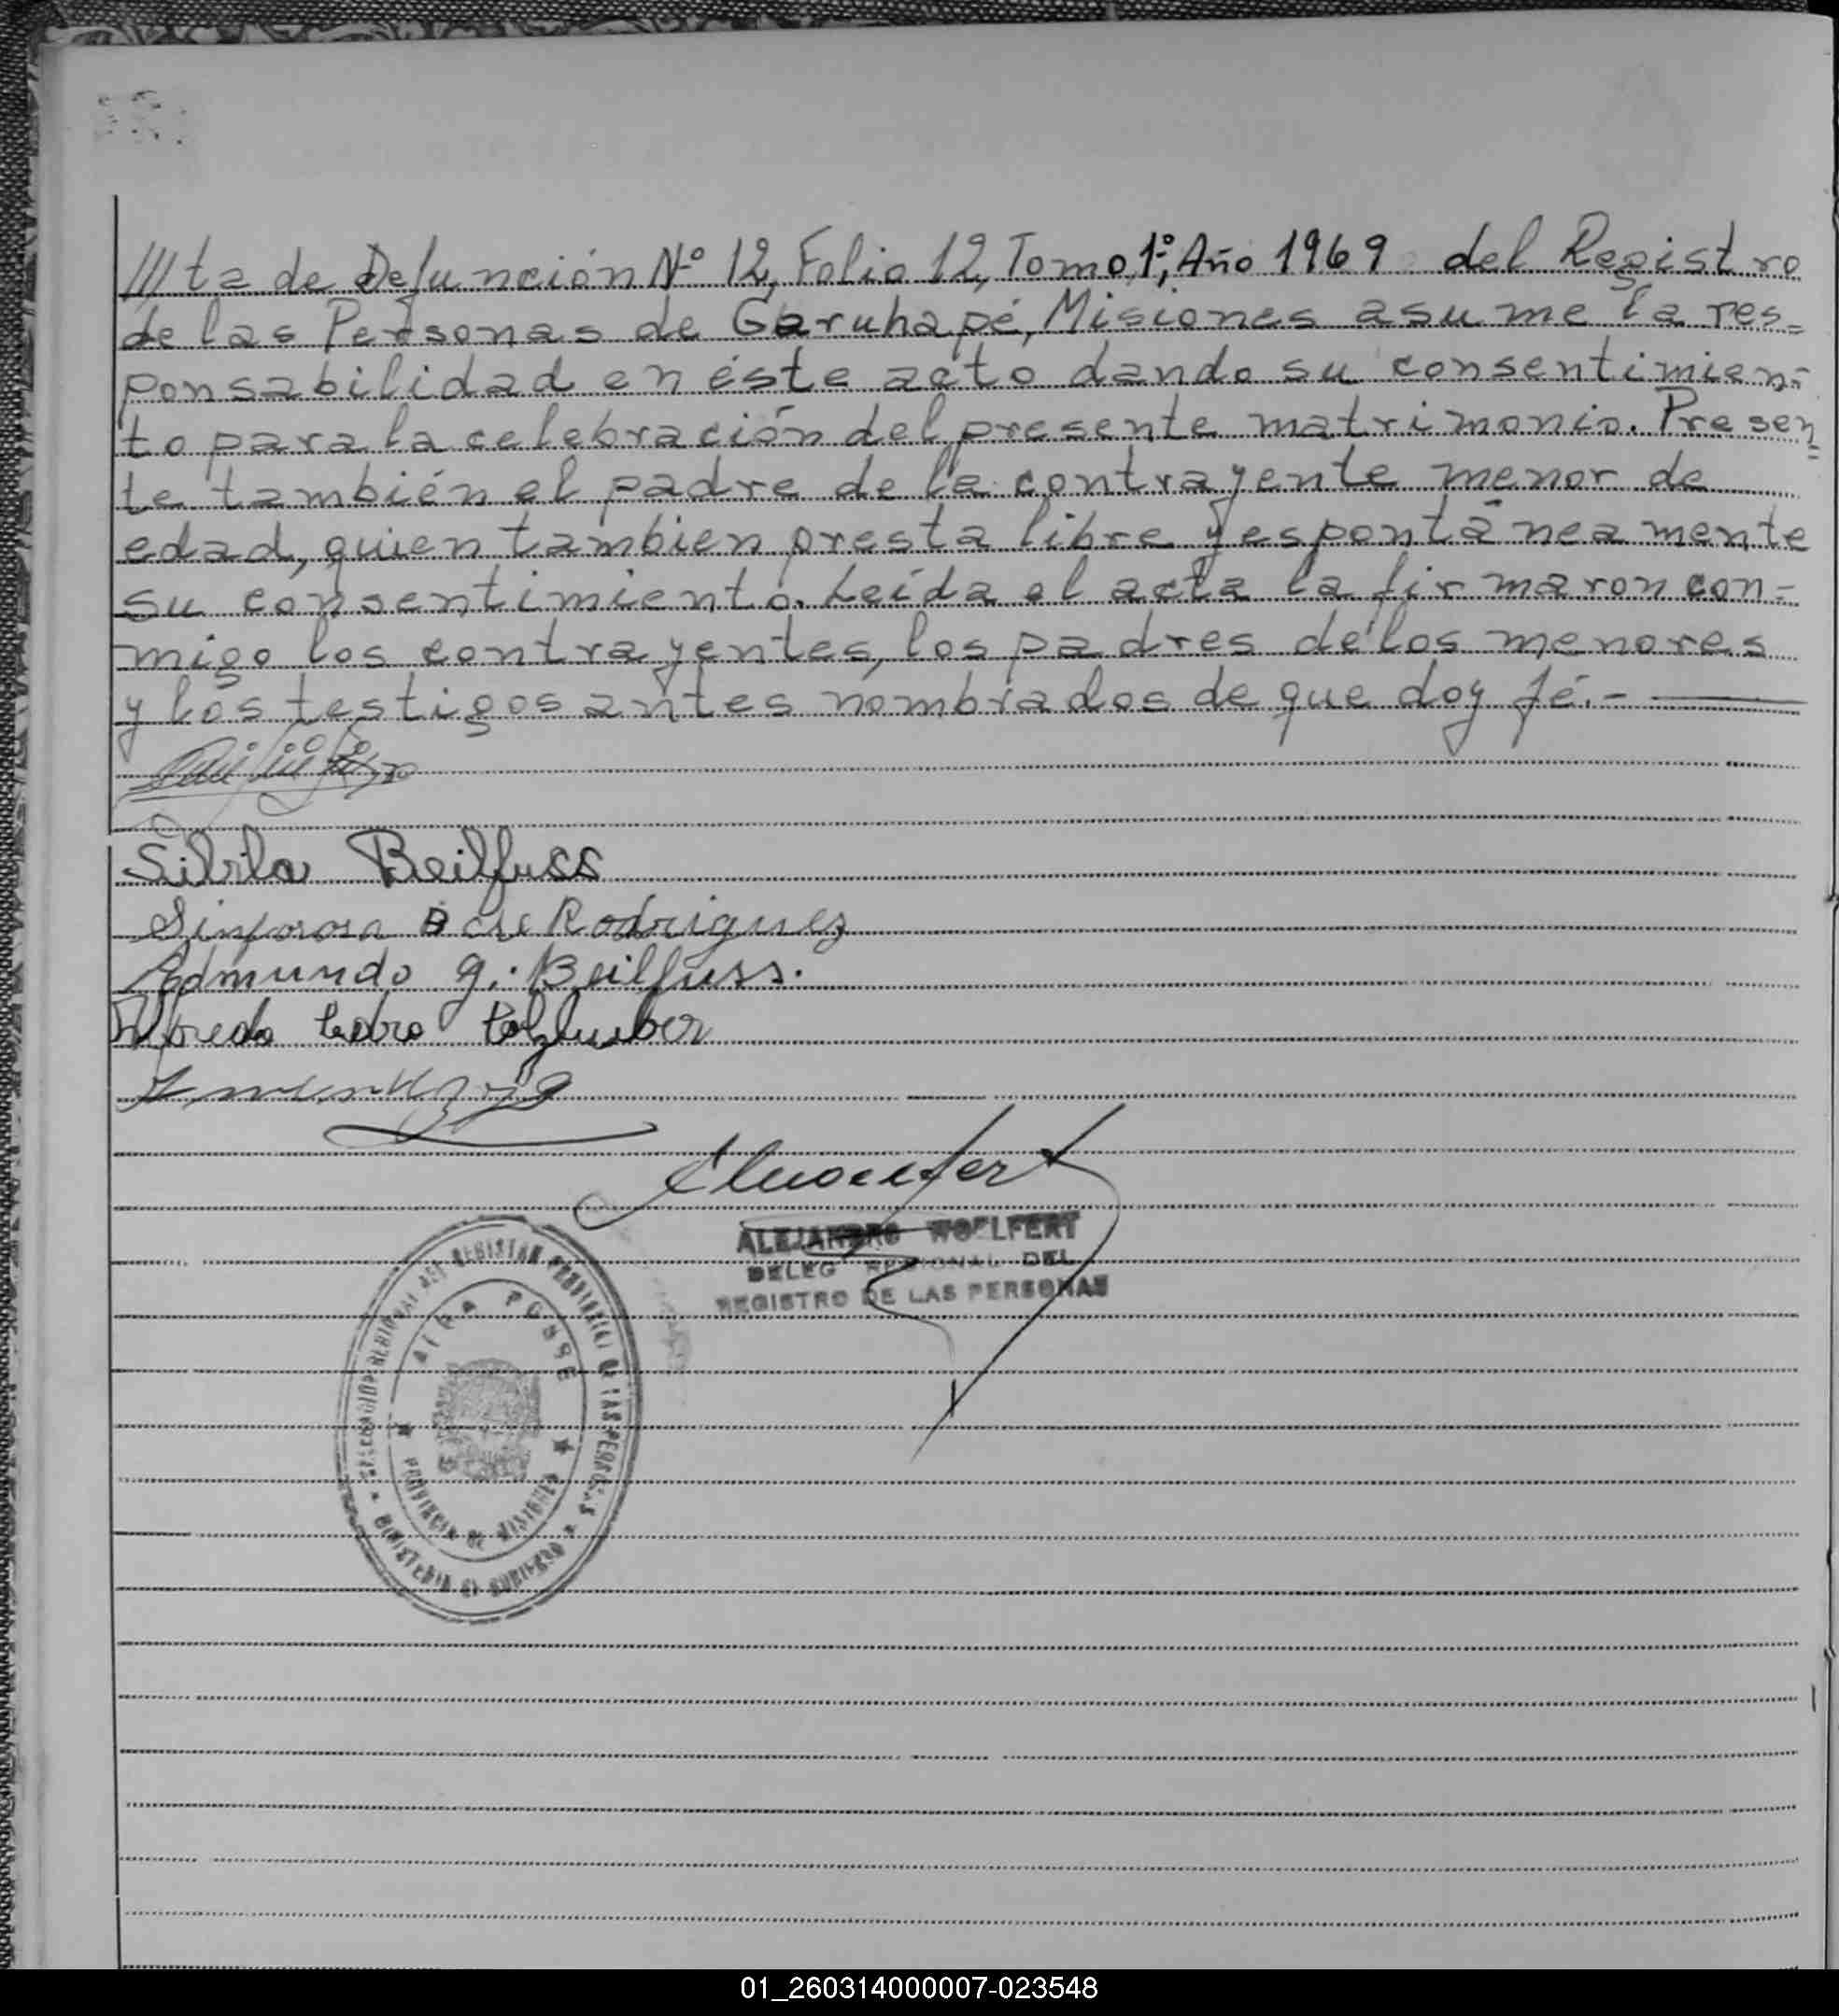 ///ta de Defunción Nº 12, Folio 12, Tomo 1º, Año 1969 del Registro
de las Personas de Garuhapé, Misiones asume la res=
ponsabilidad en éste acto dando su consentimien=
to para la celebración del presente matrimonio. Presen=
te también el padre de la contrayente menor de
edad, quien tambien presta libre y espontáneamente
su consentimiento. Leída el acta la firmaron con=
migo los contrayentes, los padres de los menores
y los testigos antes nombrados de que doy fé.-
Silvila Beilfuss
Sinforosa B de Rodriguez
Edmundo G. Beilfuss.
Alfredo Pedro
ALEJANDRO WOELFERT
DELEG REGIONAL DEL
REGISTRO DE LAS PERSONAS
DELEGACION REGIONAL DEL REGISTRO PROVINCIAL DE LAS PERSONAS
ALBA POSSE
PROVINCIA DE MISIONES
MINISTERIO DE GOBIERNO
01_260314000007-023548